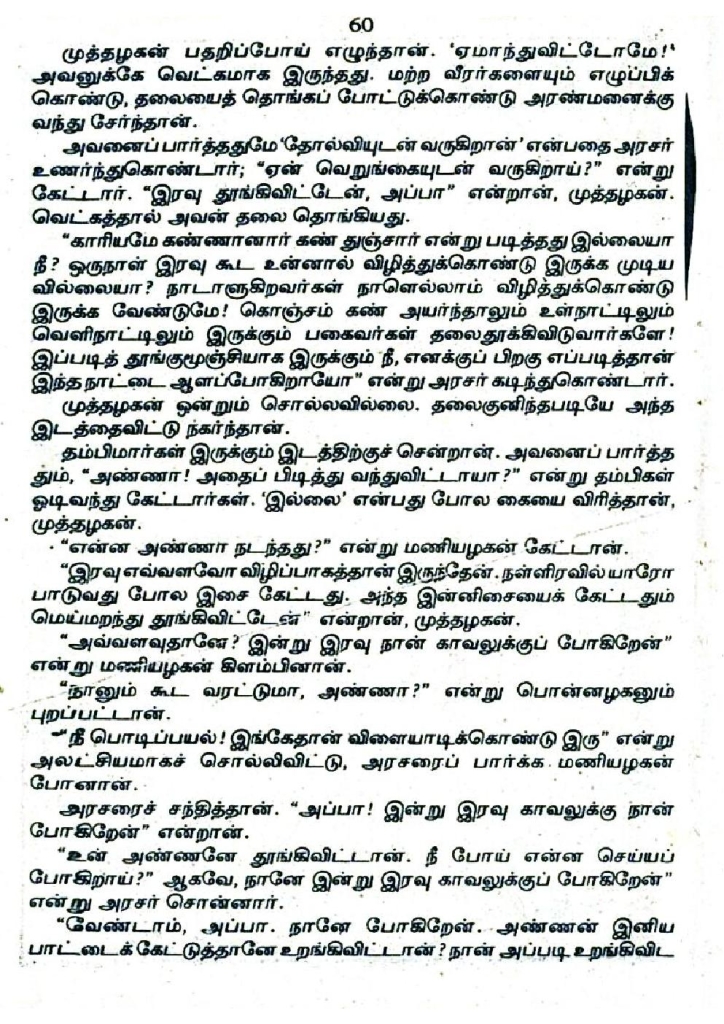 60
முத்தழகன் பதறிப்போய் எழுந்தான். 'ஏமாந்துவிட்டோமே!'
அவனுக்கே வெட்கமாக இருந்தது. மற்ற வீரர்களையும் எழுப்பிக்
கொண்டு, தலையைத் தொங்கப் போட்டுக்கொண்டு அரண்மனைக்கு
வந்து சேர்ந்தான்.
அவனைப் பார்த்ததுமே 'தோல்வியுடன் வருகிறான்' என்பதை அரசர்
உணர்ந்துகொண்டார்; "ஏன் வெறுங்கையுடன் வருகிறாய்?" என்று
கேட்டார். "இரவு தூங்கிவிட்டேன், அப்பா" என்றான், முத்தழகன்.
வெட்கத்தால் அவன் தலை தொங்கியது.
"காரியமே கண்ணானார் கண் துஞ்சார் என்று படித்தது இல்லையா
நீ? ஒருநாள் இரவு கூட உன்னால் விழித்துக்கொண்டு இருக்க முடிய
வில்லையா? நாடாளுகிறவர்கள் நாளெல்லாம் விழித்துக்கொண்டு
இருக்க வேண்டுமே! கொஞ்சம் கண் அயர்ந்தாலும் உள்நாட்டிலும்
வெளிநாட்டிலும் இருக்கும் பகைவர்கள் தலைதூக்கிவிடுவார்களே!
இப்படித் தூங்குமூஞ்சியாக இருக்கும் நீ, எனக்குப் பிறகு எப்படித்தான்
இந்த நாட்டை ஆளப்போகிறாயோ" என்று அரசர் கடிந்துகொண்டார்.
முத்தழகன் ஒன்றும் சொல்லவில்லை. தலைகுனிந்தபடியே அந்த
இடத்தைவிட்டு நகர்ந்தான்.
தம்பிமார்கள் இருக்கும் இடத்திற்குச் சென்றான். அவனைப் பார்த்த
தும், "அண்ணா! அதைப் பிடித்து வந்துவிட்டாயா?" என்று தம்பிகள்
ஓடிவந்து கேட்டார்கள். 'இல்லை' என்பது போல கையை விரித்தான்,
முத்தழகன்.
"என்ன அண்ணா நடந்தது?" என்று மணியழகன் கேட்டான்.
"இரவு எவ்வளவோ விழிப்பாகத்தான் இருந்தேன். நள்ளிரவில் யாரோ
பாடுவது போல இசை கேட்டது. அந்த இன்னிசையைக் கேட்டதும்
மெய்மறந்து தூங்கிவிட்டேன்" என்றான், முத்தழகன்.
"அவ்வளவுதானே? இன்று இரவு நான் காவலுக்குப் போகிறேன்"
என்று மணியழகன் கிளம்பினான்.
"நானும் கூட வரட்டுமா, அண்ணா?" என்று பொன்னழகனும்
புறப்பட்டான்.
"நீ பொடிப்பயல்! இங்கேதான் விளையாடிக்கொண்டு இரு" என்று
அலட்சியமாகச் சொல்லிவிட்டு, அரசரைப் பார்க்க மணியழகன்
போனான்.
அரசரைச் சந்தித்தான். "அப்பா! இன்று இரவு காவலுக்கு நான்
போகிறேன்" என்றான்.
"உன் அண்ணனே தூங்கிவிட்டான். நீ போய் என்ன செய்யப்
போகிறாய்?" ஆகவே, நானே இன்று இரவு காவலுக்குப் போகிறேன்"
என்று அரசர் சொன்னார்.
"வேண்டாம், அப்பா. நானே போகிறேன். அண்ணன் இனிய
பாட்டைக் கேட்டுத்தானே உறங்கிவிட்டான்? நான் அப்படி உறங்கிவிட